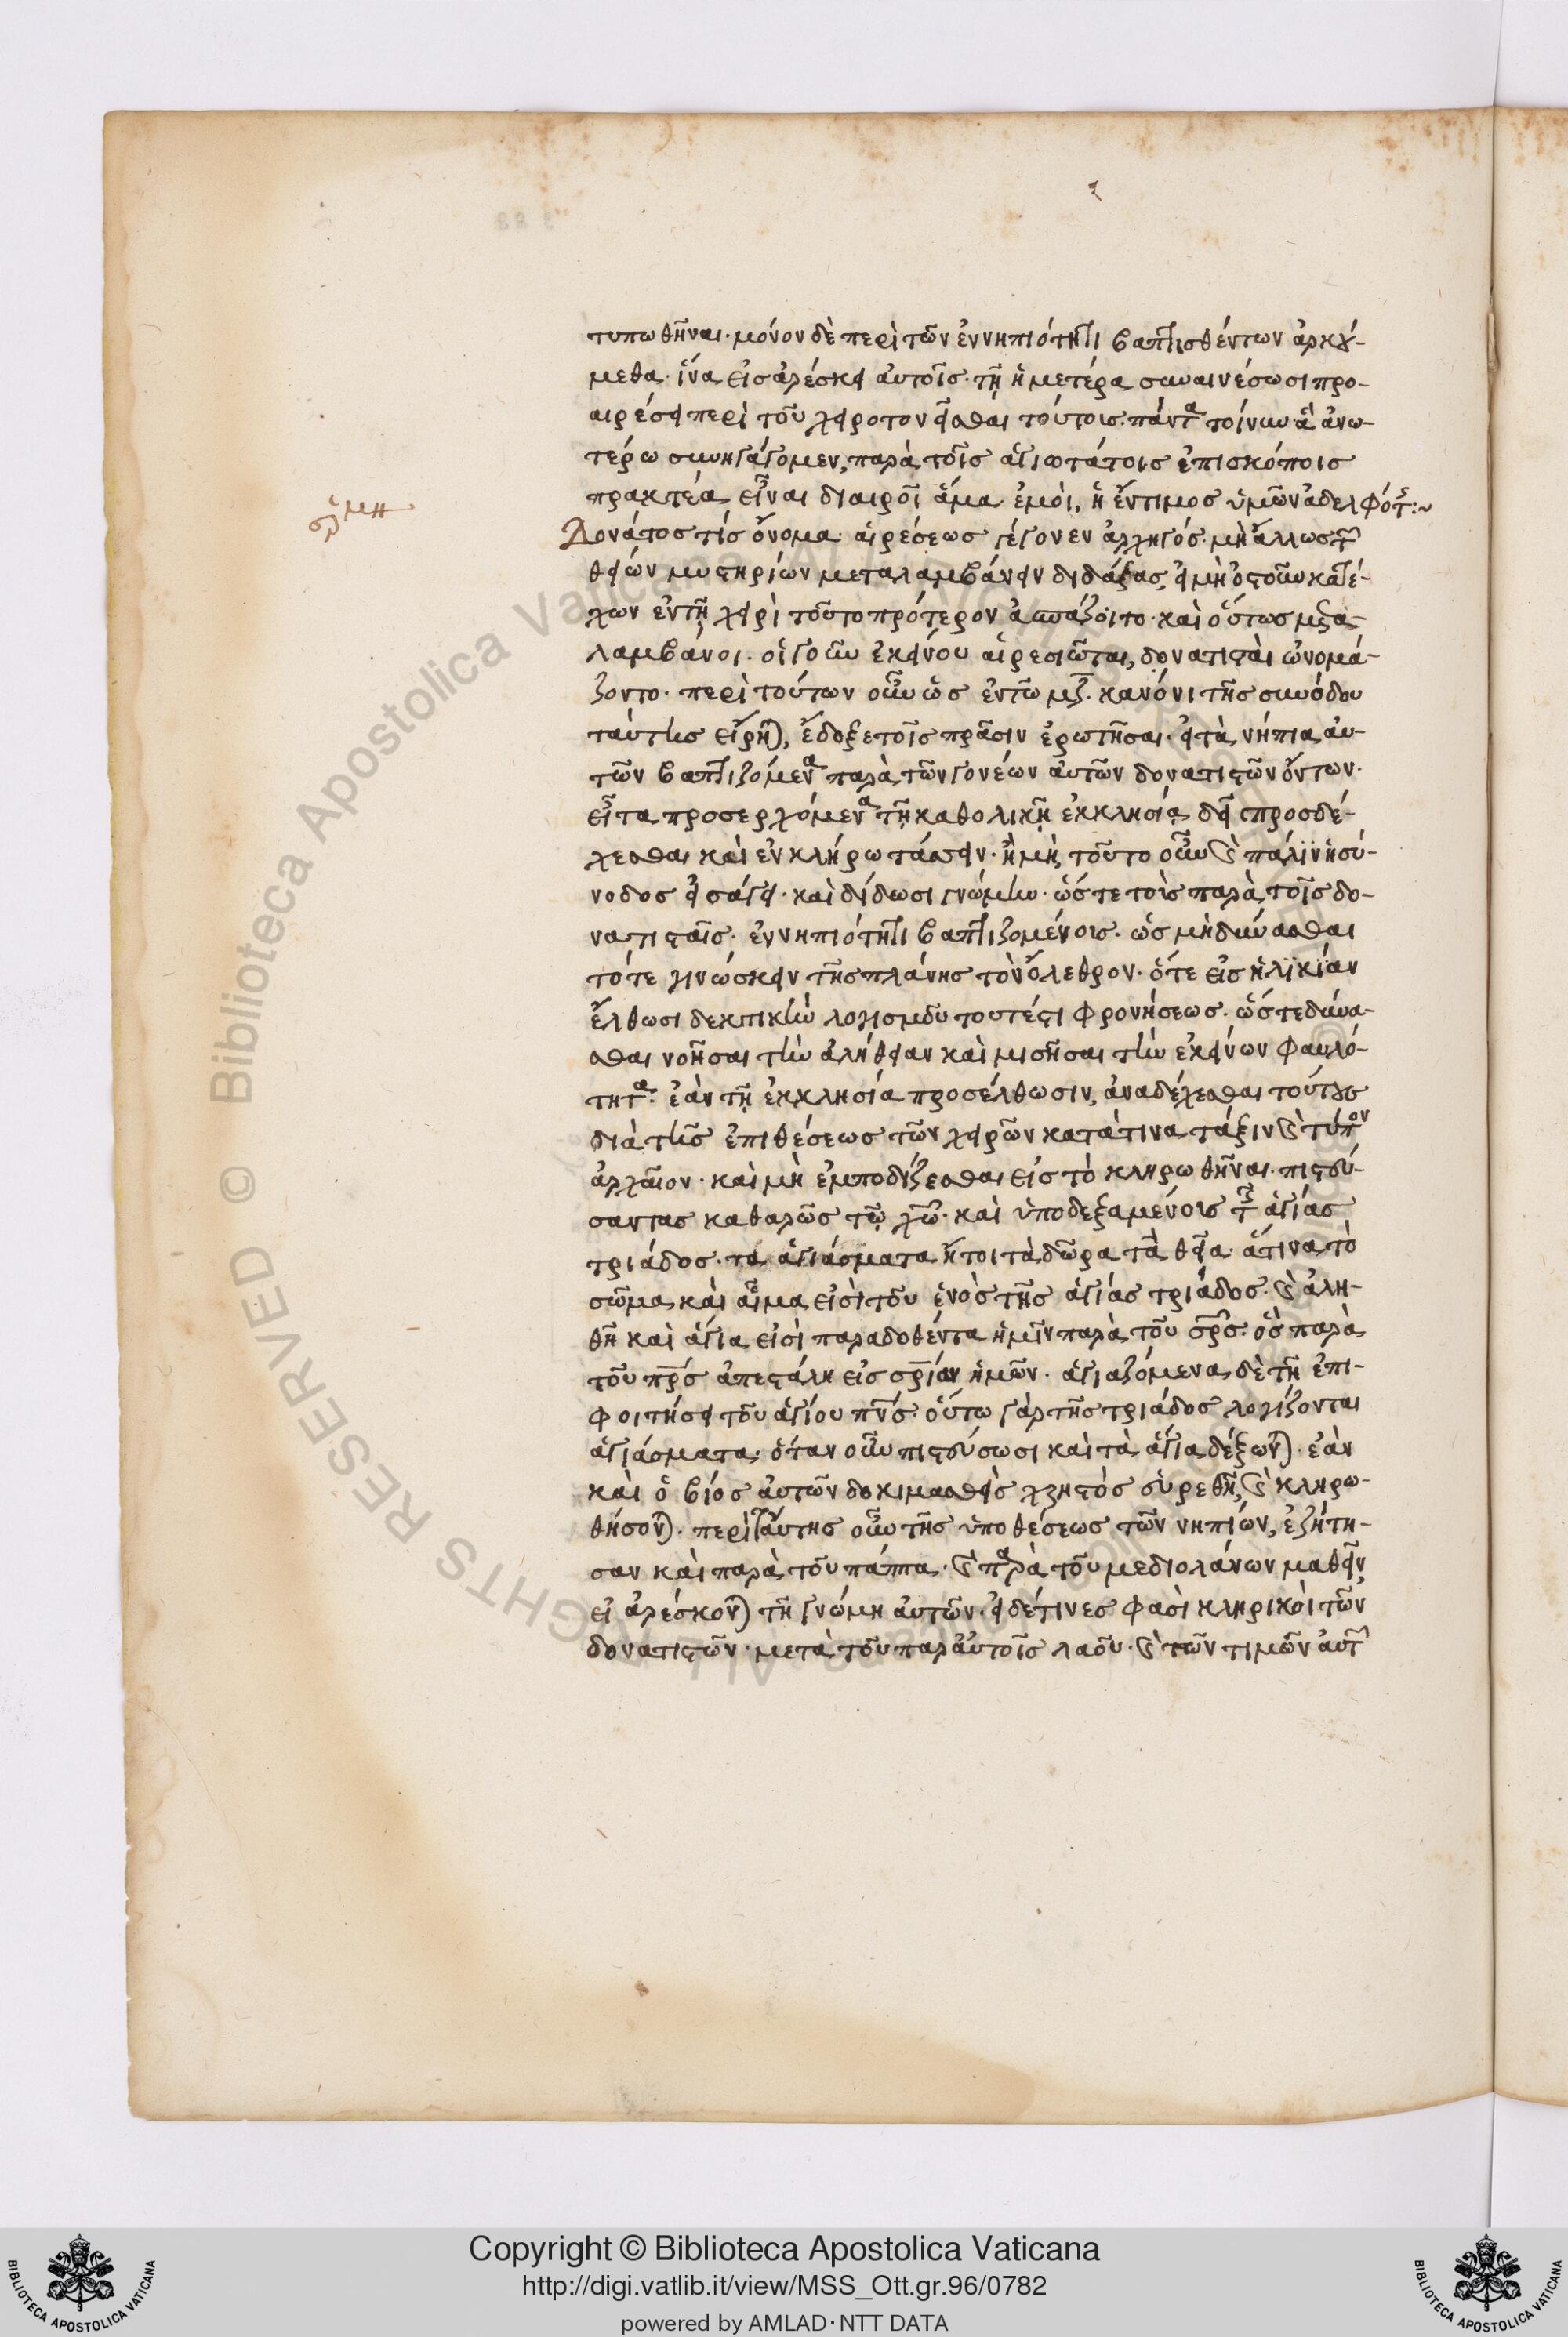 τυπωθῆναι· μόνον δὲ περὶ τῶν ἐν νηπιότητι βαπτισθέντων ἀρκού-
μεθα· ἵνα εἰ σ ἀρέσκει αὐτοῖς· τῇ ἡμετέρα συναινέσωσι προ-
αιρέσει περὶ τοῦ χειροτονεῖσθαι τούτοις· πάντα τοίνυν ἃ ἀνω-
τέρω συνηγάγομεν, παρὰ τοῖς ἁγιωτάτοις ἐπισκόποις
πρακτέα εἶναι διαιροῖ ἅμα ἐμοὶ, ἡ ἔντιμος ὑμῶν ἀδελφότης:~
σχό μη
Δονάτος τίς ὄνομα αἱρέσεως γέγονεν ἀρχηγός· μὴ ἄλλως τῶν
θείων μυστηρίων μεταλαμβάνειν διδάξας, εἰ μὴ ὀστοῦν κατέ-
χων ἐν τῇ χειρὶ τοῦτο πρότερον ἀσπάζοιτο· καὶ οὕτως μετα
λαμβάνοι· οἱ γοῦν ἐκείνου αἱρεσιῶται, δονατισταὶ ὠνομά-
ζοντο· περὶ τούτων οὖν ὡς ἐν τῶ μζ· κανόνι τῆς συνόδου
ταύτης εἴρηται, ἔδοξε τοῖς πρᾶσιν ἐρωτῆσαι· εἰ τὰ νήπια αὐ-
τῶν βαπτιζόμενα παρὰ τῶν γονέων αὐτῶν δονατιστῶν ὄντων·
εἶτα προσερχόμενα τῇ καθολικῇ ἐκκλησίᾳ δεῖ προσδέ-
χεσθαι καὶ ἐν κλήρω τάσσειν· ἢ μὴ, τοῦτο οὖν καὶ πάλϊν ἡ σύ-
νοδος εἰσάγει· καὶ δίδωσι γνώμην· ὥστε τοὶς παρὰ τοῖς δο-
νατισταῖς· ἐν νηπιότητι βαπτιζομένοις· ὡς μὴ δύνασθαι
τότε γινώσκειν τῆς πλάνης τὸν ὄλεθρον· ὅτε εἰς ἡλϊκίαν
ἔλθωσι δεκτικὴν λογισμοῦ τουτέστι φρονήσεως· ὥστε δύνα-
σθαι νοῆσαι τὴν ἀλήθειαν καὶ μισῆσαι τὴν ἐκείνων φαυλό-
τητα· ἐὰν τῇ ἐκκλησία προσέλθωσιν, ἀναδέχεσθαι τούτους
διὰ τῆς ἐπιθέσεως τῶν χειρῶν κατά τινα τάξιν καὶ τύπον
ἀρχαῖον· καὶ μὴ ἐμποδίζεσθαι εἰς τὸ κληρωθῆναι· πιστεύ-
σαντας καθαρῶς τῷ χῶ· καὶ ὑποδεξαμένοις τῆς ἁγίας
τριάδος· τὰ ἁγιάσματα ἤτοι τὰ δῶρα τὰ θεῖα· ἅτινα τὸ
σῶμα καὶ αἷμα εἰσὶ τοῦ ἑνὸς τῆς ἁγίας τριάδος· καὶ ἀλη-
θῆ καὶ ἅγια εἰσὶ παραδοθέντα ἡμῖν παρὰ τοῦ σρς· ὃς παρὰ
τοῦ πρς ἀπεστάλη εἰς σρίαν ἡμῶν· ἁγιαζόμενα δὲ τῇ ἐπι-
φοιτήσει τοῦ ἁγίου πνς· οὕτω γὰρ τῆς τριάδος λογίζονται
ἁγιάσματα· ὅταν οὖν πιστεύσωσι καὶ τὰ ἅγια δέξωνται· ἐὰν
καὶ ὁ βίος αὐτῶν δοκιμασθεὶς χρηστὸς εὑρεθῇ, καὶ κληρω-
θήσονται· περὶ ταύτης οὖν τῆς ὑποθέσεως τῶν νηπίων, ἐζήτη-
σαν καὶ παρὰ τοῦ πάππα· καὶ παρὰ τοῦ μεδιολάνων μαθεῖν
εἰ ἀρέσκονται τῇ γνώμη αὐτῶν· εἰ δέ τινες φασὶ κληρικοὶ τῶν
δονατιστῶν· μετὰ τοῦ παρ' αὐτοῖς λαοῦ· καὶ τῶν τιμῶν αὐτῶν
Copyright © Biblioteca Apostolica Vaticana
http://digi.vatlib.it/view/MSS_Ott.gr.96/0782
powered by AMLAD·NTT DATA
BIBLIOTECA APOSTOLICA VATICANA
BIBLIOTECA APOSTOLICA VATICANA